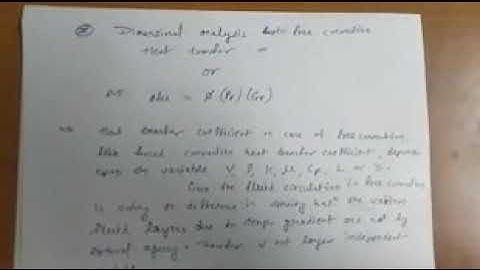 ② Dimensional analysis free convection
Heat transfer =
OR
Nu = Ø (Pr) (Gr)
⇒ Heat transfer coefficient in case of free convection,
like forced convection heat transfer coefficient, depends
upon the variable V, ρ, K, μ, Cp, L or D.
Since the fluid circulation in free convection
is owing to difference in density between the various
fluid layers due to temp. gradient and not by
external agency. velocity V no longer independent